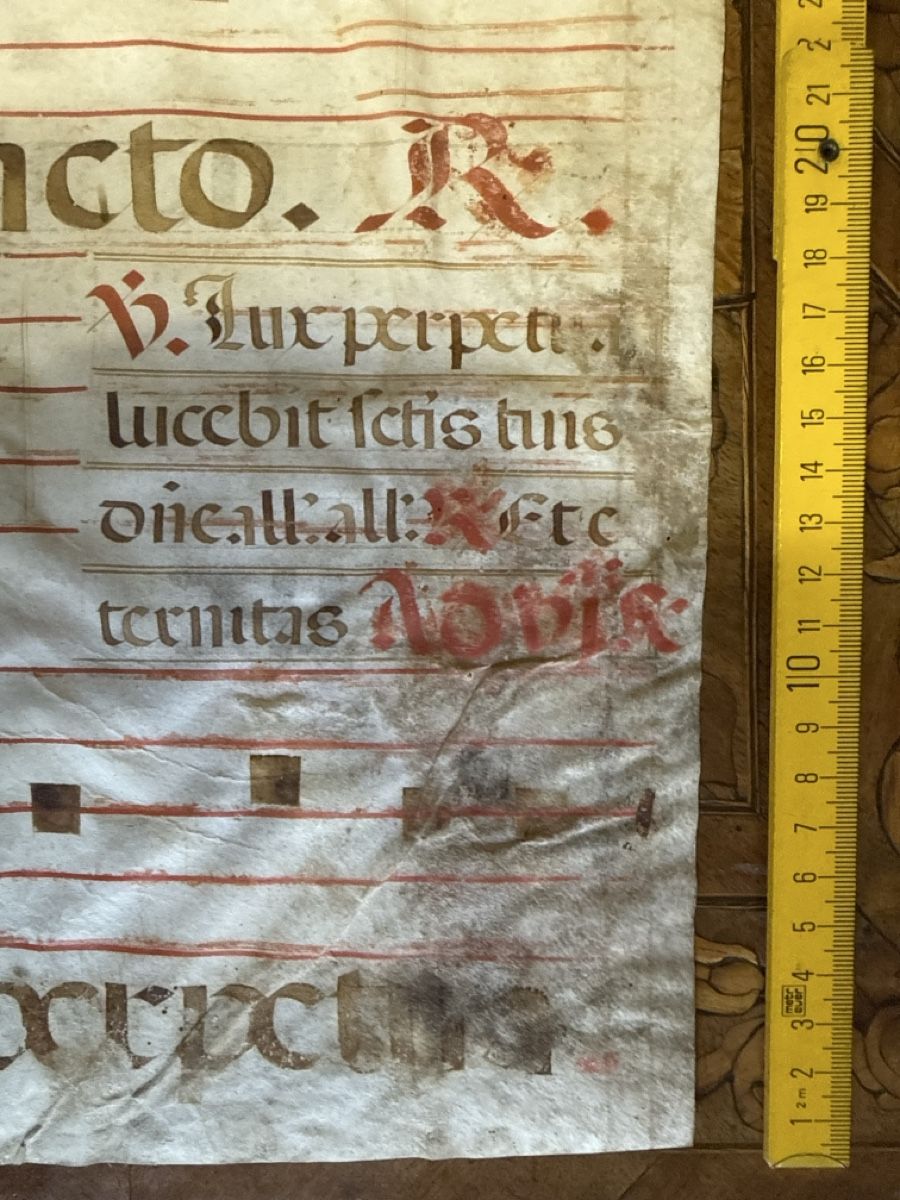 ncto. R.
V. Lux perpetu .
lucebit sctis tuis
dñe.all'.all': R Et e
ternitas Ad vís
erpetua
22 21 20 19 18 17 16 15 14 13 12 11 10 9 8 7 6 5 4 3 2 1
metr
2 m